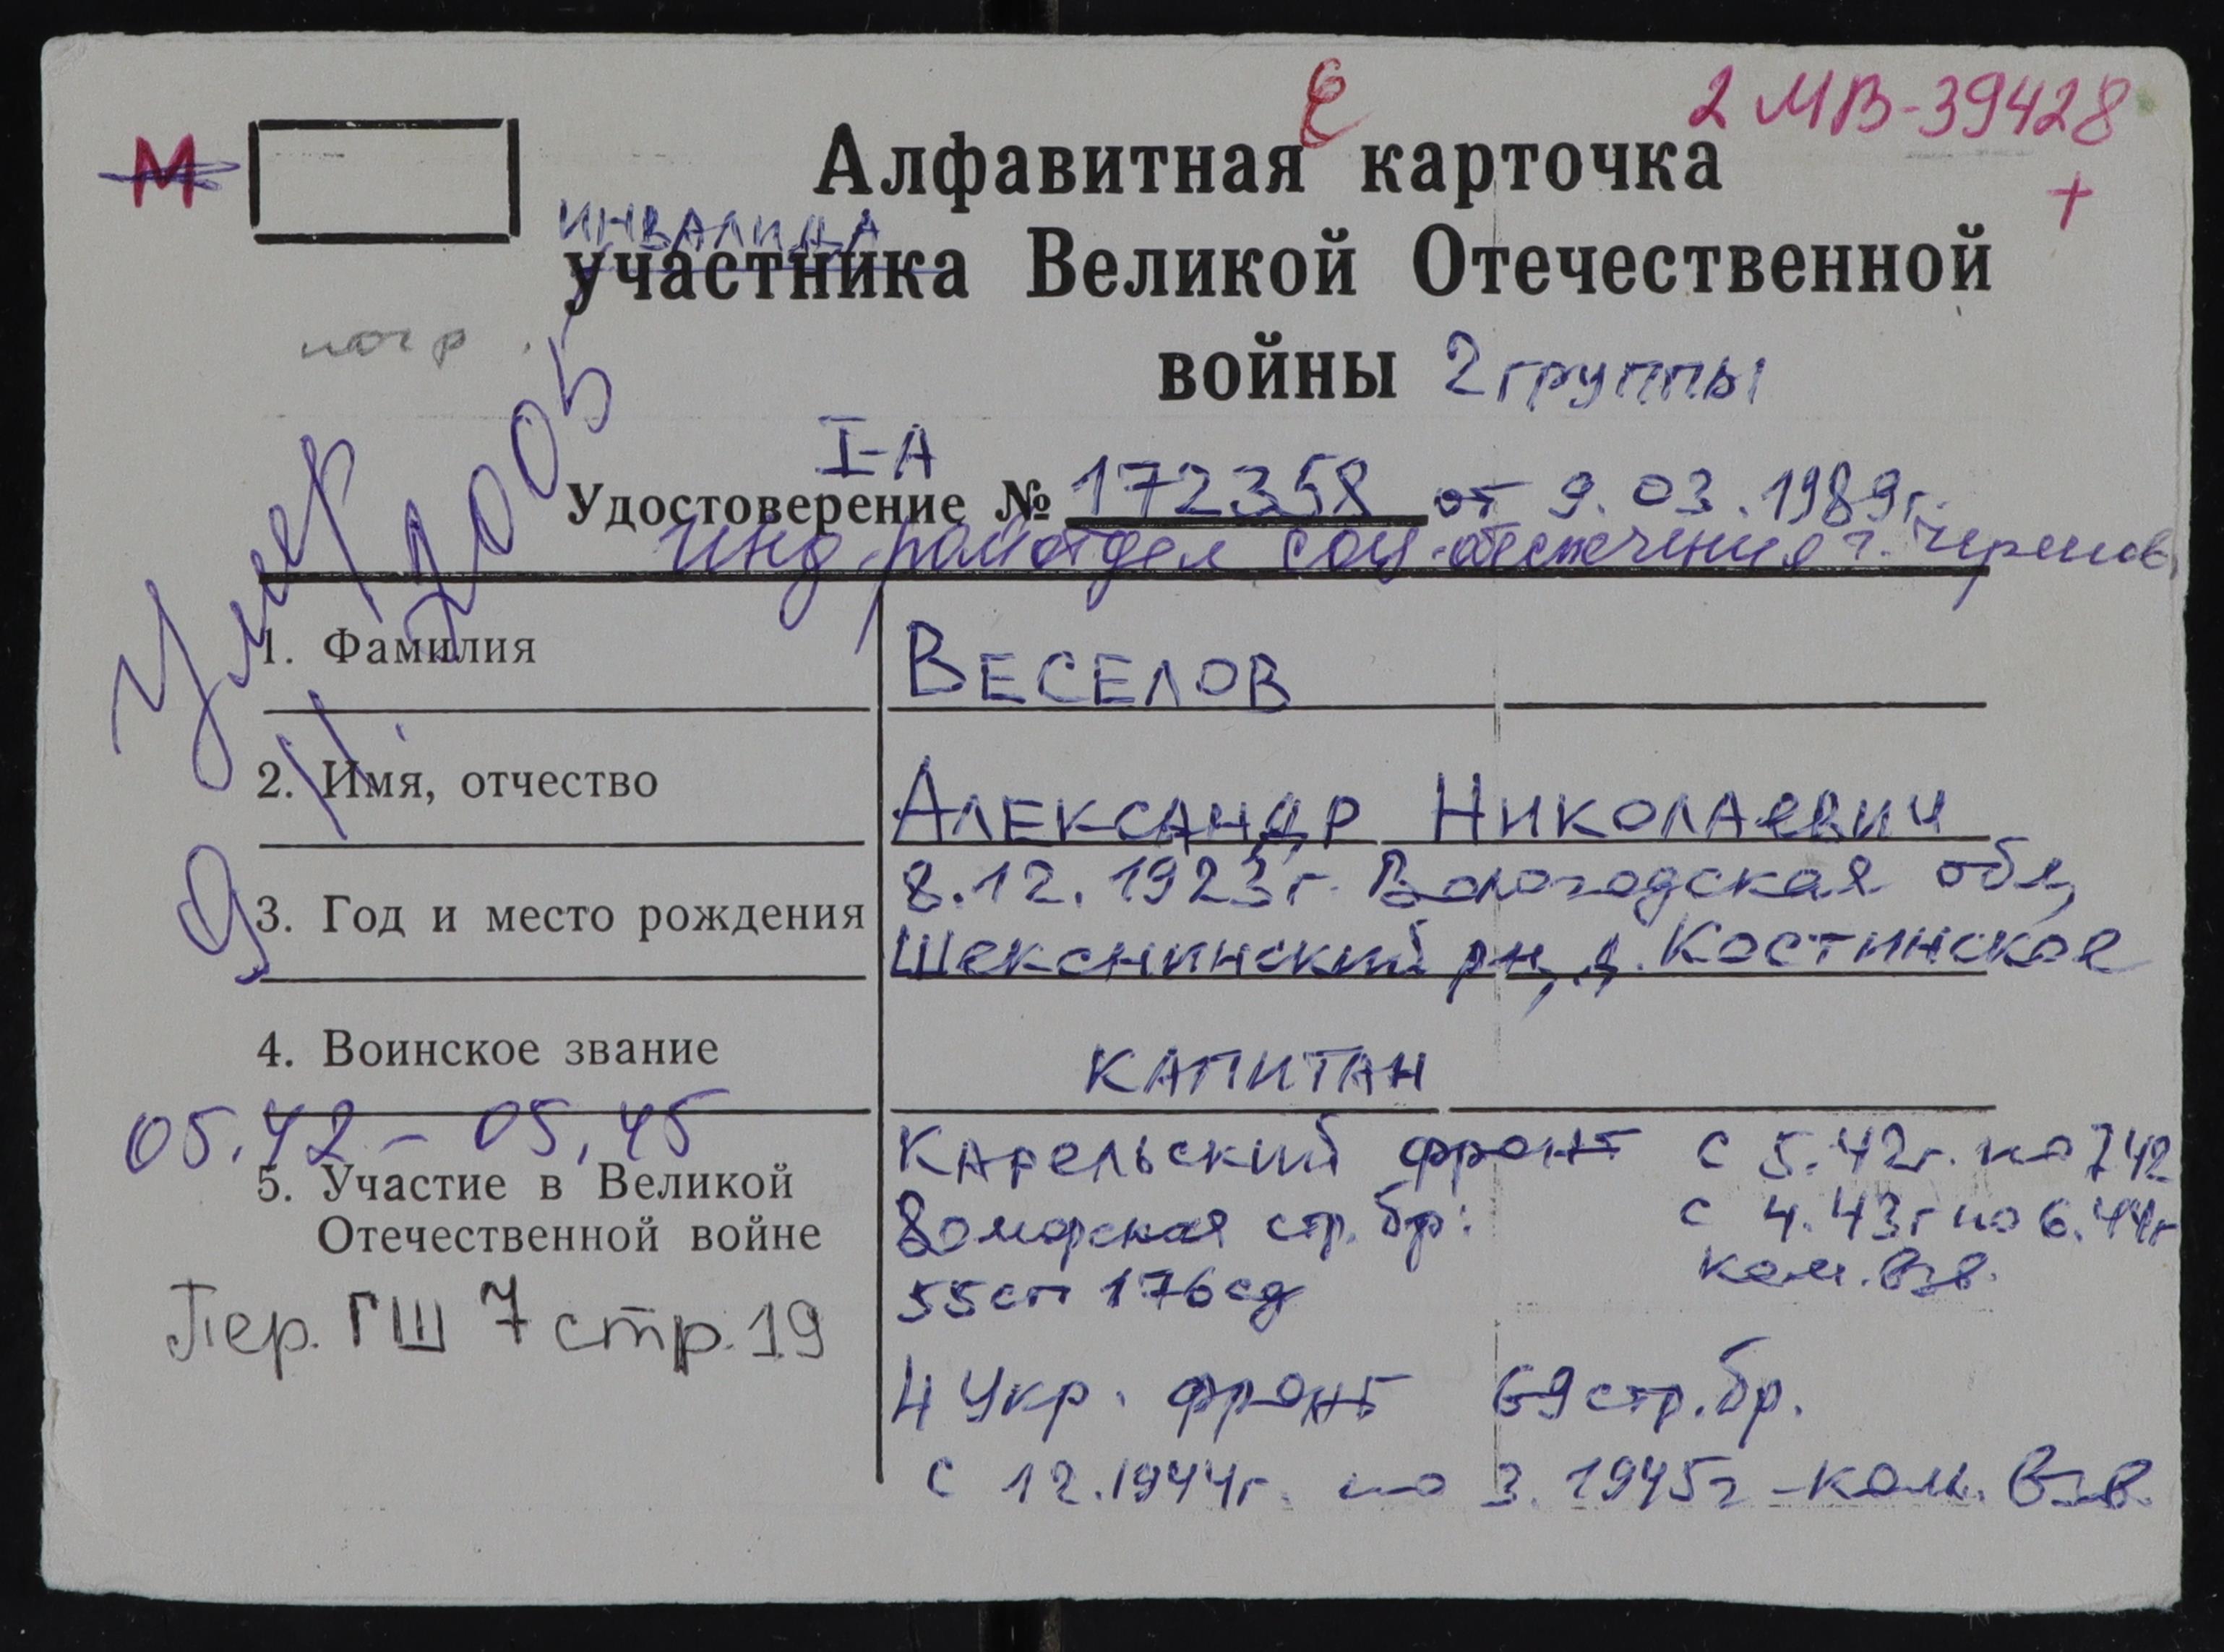 2 МВ-39428
М
Алфавитная карточка
+
инвалида
участника Великой Отечественной
войны 2 группы
I-А
Удостоверение № 172358 от 9.03.1989г.
Инд. райотдел соц. обеспечения г. Черепов.
Умер 9.11.2005
1. Фамилия ВЕСЕЛОВ
2. Имя, отчество АЛЕКСАНДР НИКОЛАЕВИЧ
3. Год и место рождения 8.12.1923г. Вологодская обл,
Шекснинский рн, д. Костинское
4. Воинское звание КАПИТАН
05.42 - 05.45
5. Участие в Великой
Отечественной войне
Карельский фронт с 5.42г. по 7 42
8 оморская стр. бр: с 4.43г по 6.44г
55 сп 176 сд ком. взв.
Пер. ГШ 7 стр. 19
4 Укр. фронт 69 стр. бр.
с 12.1944г. по 3.1945г - ком. взв.